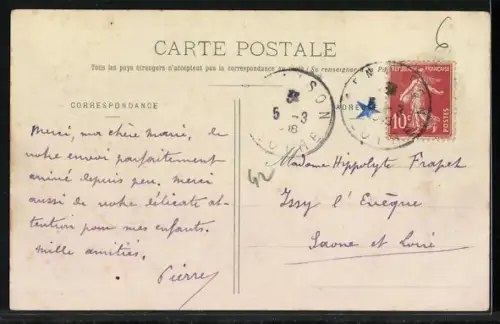 6
CARTE POSTALE
Tous les pays étrangers n'acceptent pas la correspondance au recto (Se renseigner à la
CORRESPONDANCE
Merci, ma chère Marie, de
notre envoi parfaitement
arrivé depuis peu. Merci
aussi de notre délicate at-
tention pour mes enfants.
Mille amitiés.
Pierre
5 -3
SON
LOIRE
RÉPUBLIQUE FRANÇAISE
10c
POSTES
42
Madame Hippolyte Frapet
Issy l'Evêque
Saone et Loire